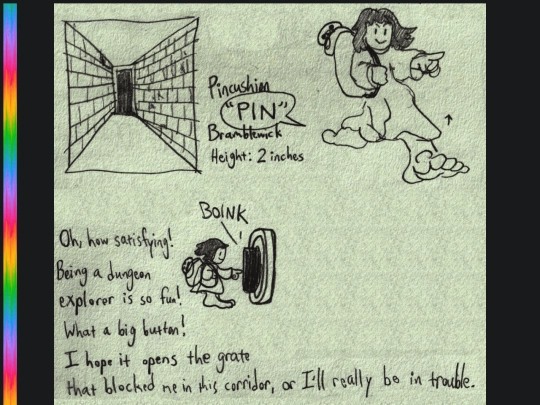 Pincushion
"PIN"
Bramblewick
Height: 2 inches
BOINK
Oh, how satisfying!
Being a dungeon
explorer is so fun!
What a big button!
I hope it opens the grate
that blocked me in this corridor, or I'll really be in trouble.